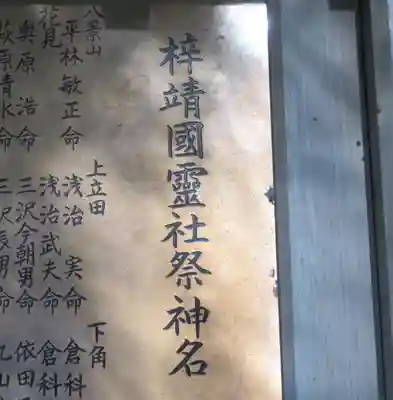 梓靖國靈社祭神名
八景山
平林敏正命
花見
奥原浩命
荻原清水命
上立田
浅治実命
浅治武夫命
三沢今朝男命
三沢辰男命
下角
倉科
倉科
依田
丸山